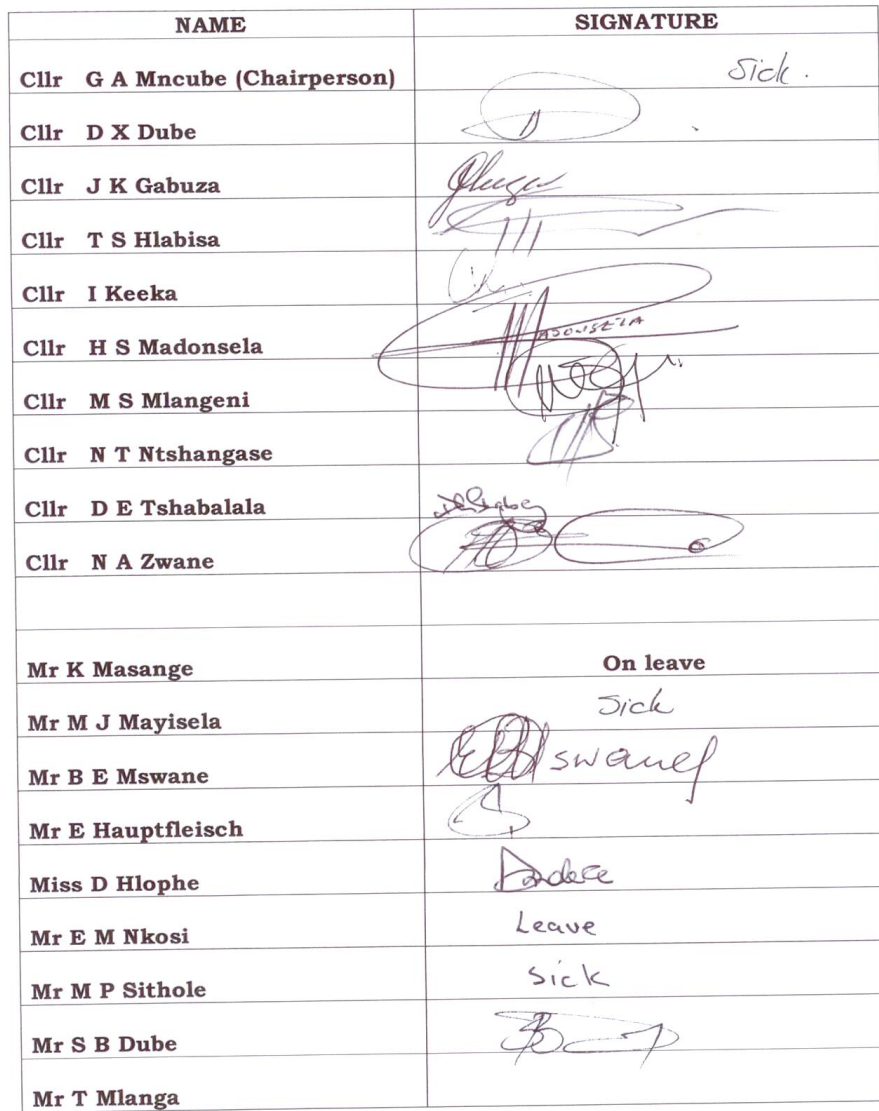 NAME SIGNATURE
Cllr G A Mncube (Chairperson) Sick.
Cllr D X Dube
Cllr J K Gabuza
Cllr T S Hlabisa
Cllr I Keeka
Cllr H S Madonsela MADONSELA
Cllr M S Mlangeni
Cllr N T Ntshangase
Cllr D E Tshabalala
Cllr N A Zwane
Mr K Masange On leave
Mr M J Mayisela Sick
Mr B E Mswane
Mr E Hauptfleisch
Miss D Hlophe
Mr E M Nkosi Leave
Mr M P Sithole Sick
Mr S B Dube
Mr T Mlanga